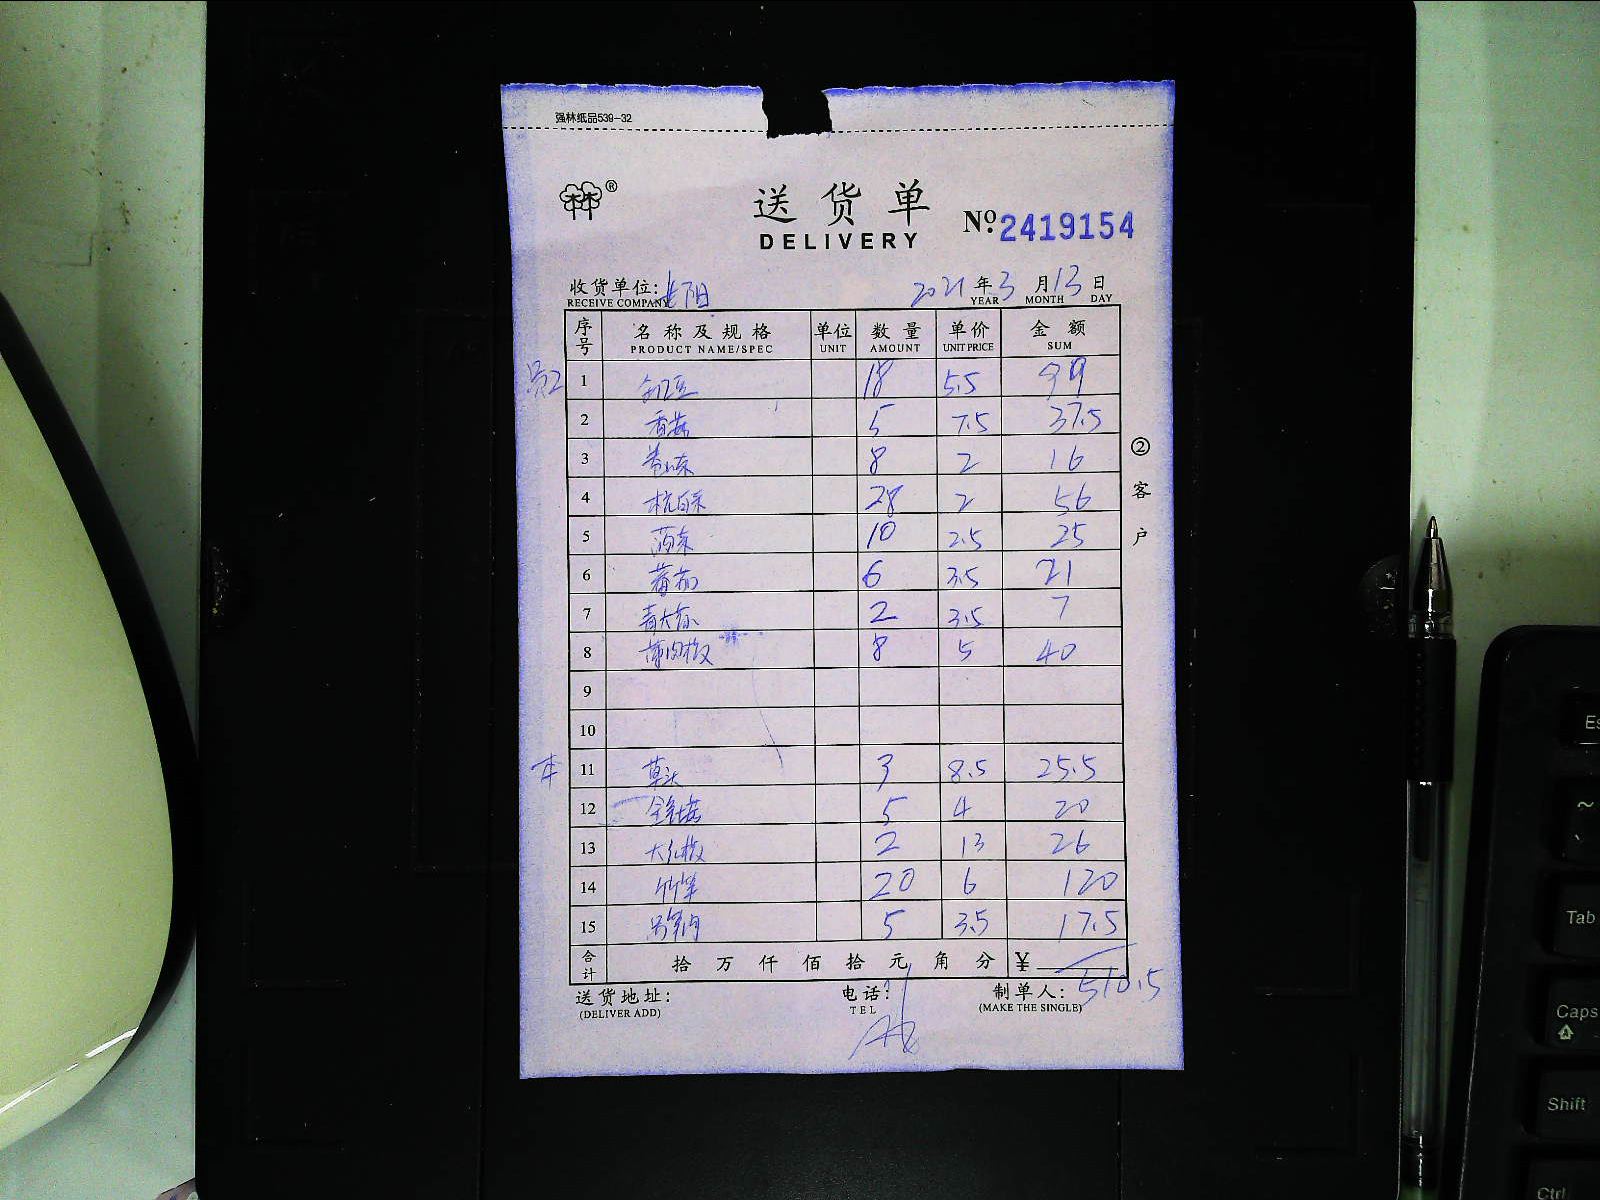 强林纸品539-32
林®
送货单
DELIVERY
No: 2419154
收货单位:
RECEIVE COMPANY
2021年3月13日
YEAR MONTH DAY
序号 名称及规格 单位 数量 单价 金额
PRODUCT NAME/SPEC UNIT AMOUNT UNIT PRICE SUM
员工 1 18 5.5 99
2 香菇 5 7.5 37.5
3 8 2 16
4 杭白菜 28 2 56
5 10 2.5 25
6 番茄 6 3.5 21
7 2 3.5 7
8 薄肉椒 8 5 40
9
10
11 草头 3 8.5 25.5
12 金针菇 5 4 20
13 大红椒 2 13 26
14 竹笋 20 6 120
15 5 3.5 17.5
合计 拾万仟佰拾元角分 ¥ 510.5
送货地址: 电话: 制单人:
(DELIVER ADD) TEL (MAKE THE SINGLE)
②客户
Tab
Caps
Shift
Ctrl